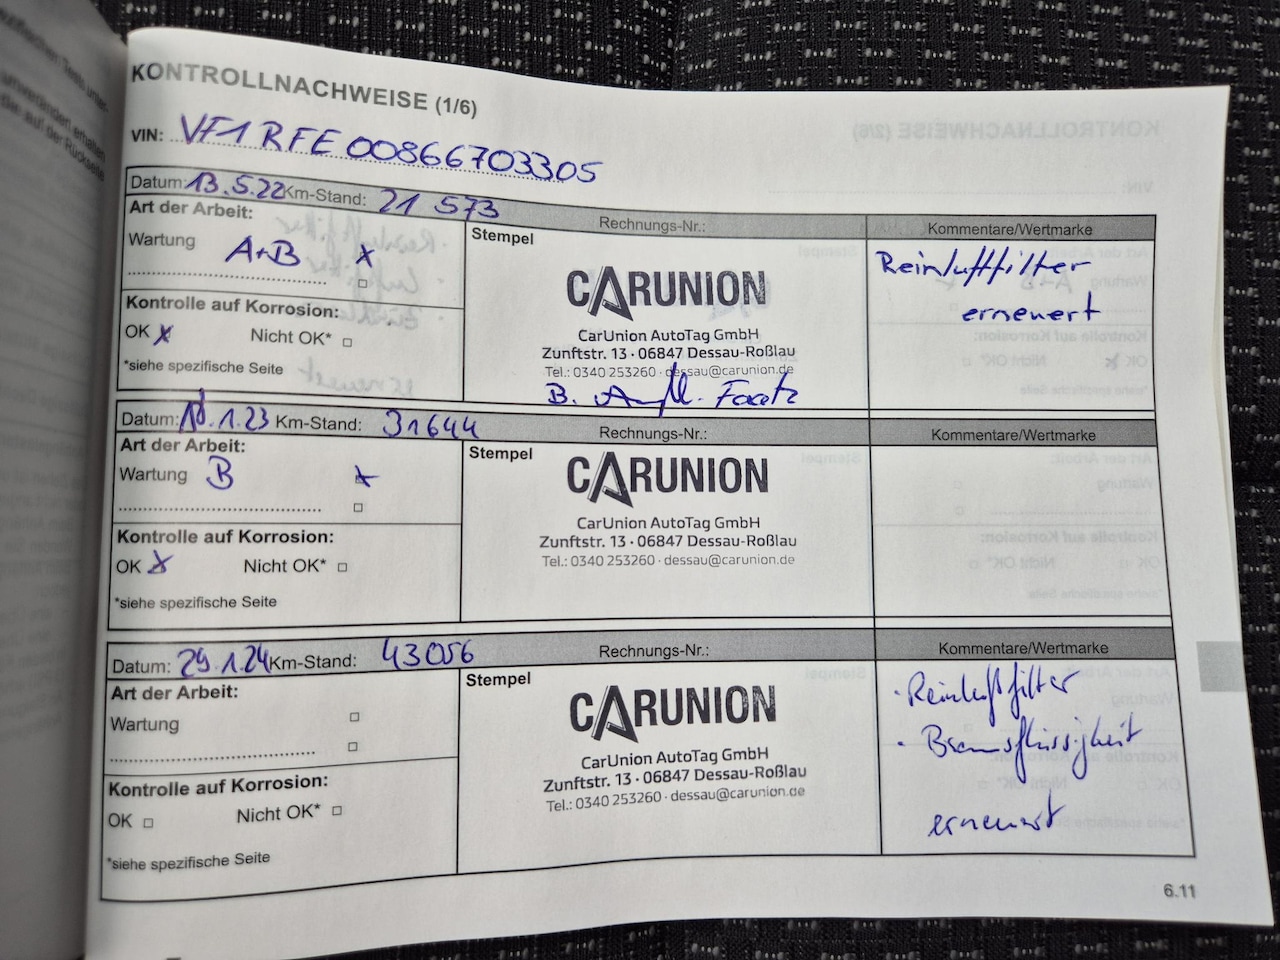 KONTROLLNACHWEISE (1/6)
VIN: VF1 RFE 00866703305
Datum: 13.5.22 Km-Stand: 21 573
Rechnungs-Nr.:
Kommentare/Wertmarke
Art der Arbeit:
Wartung A+B x
Kontrolle auf Korrosion:
OK x Nicht OK*
*siehe spezifische Seite
Stempel
CARUNION
CarUnion AutoTag GmbH
Zunftstr. 13 · 06847 Dessau-Roßlau
Tel.: 0340 253260 · dessau@carunion.de
B.
Reinluftfilter
erneuert
Datum: .1.23 Km-Stand: 31644
Rechnungs-Nr.:
Kommentare/Wertmarke
Art der Arbeit:
Wartung B x
Kontrolle auf Korrosion:
OK x Nicht OK*
*siehe spezifische Seite
Stempel
CARUNION
CarUnion AutoTag GmbH
Zunftstr. 13 · 06847 Dessau-Roßlau
Tel.: 0340 253260 · dessau@carunion.de
Datum: 29.1.24 Km-Stand: 43056
Rechnungs-Nr.:
Kommentare/Wertmarke
Art der Arbeit:
Wartung
Kontrolle auf Korrosion:
OK Nicht OK*
*siehe spezifische Seite
Stempel
CARUNION
CarUnion AutoTag GmbH
Zunftstr. 13 · 06847 Dessau-Roßlau
Tel.: 0340 253260 · dessau@carunion.de
· Reinluftfilter
· Bremsflüssigkeit
erneuert
6.11